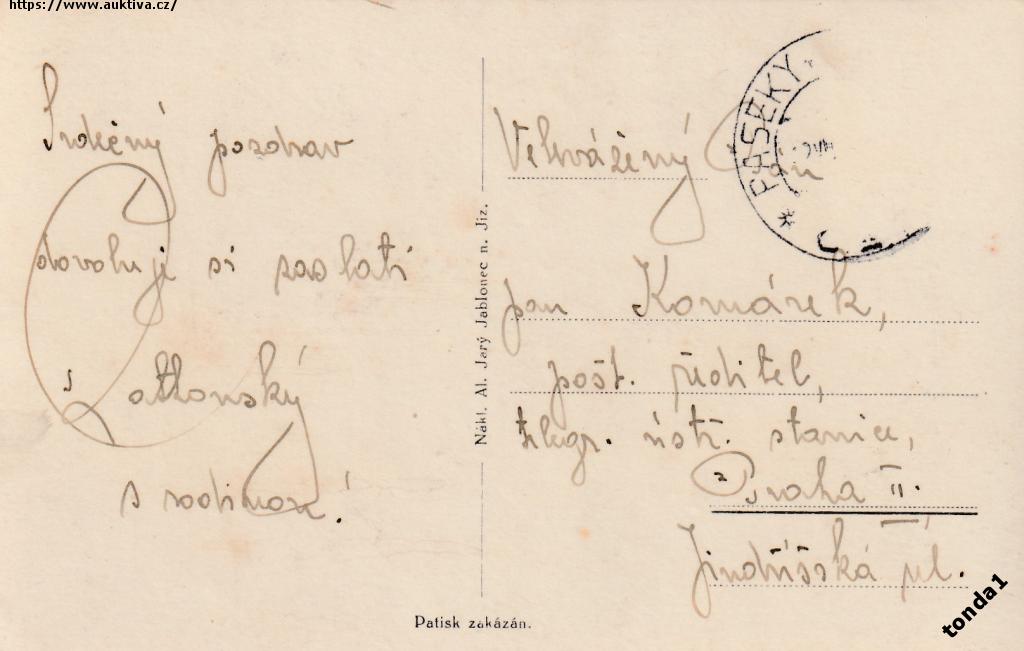 https://www.auktiva.cz/
Srdečný pozdrav
dovoluji si zaslati
s rodinou!
Nákl. Al. Jarý Jablonec n. Jiz.
* PASEKY
Velevážený Pán
pan Komárek,
pošt. ředitel,
telegr. ústř. stanice,
Praha II.
Jindřišská ul.
Patisk zakázán.
tonda1